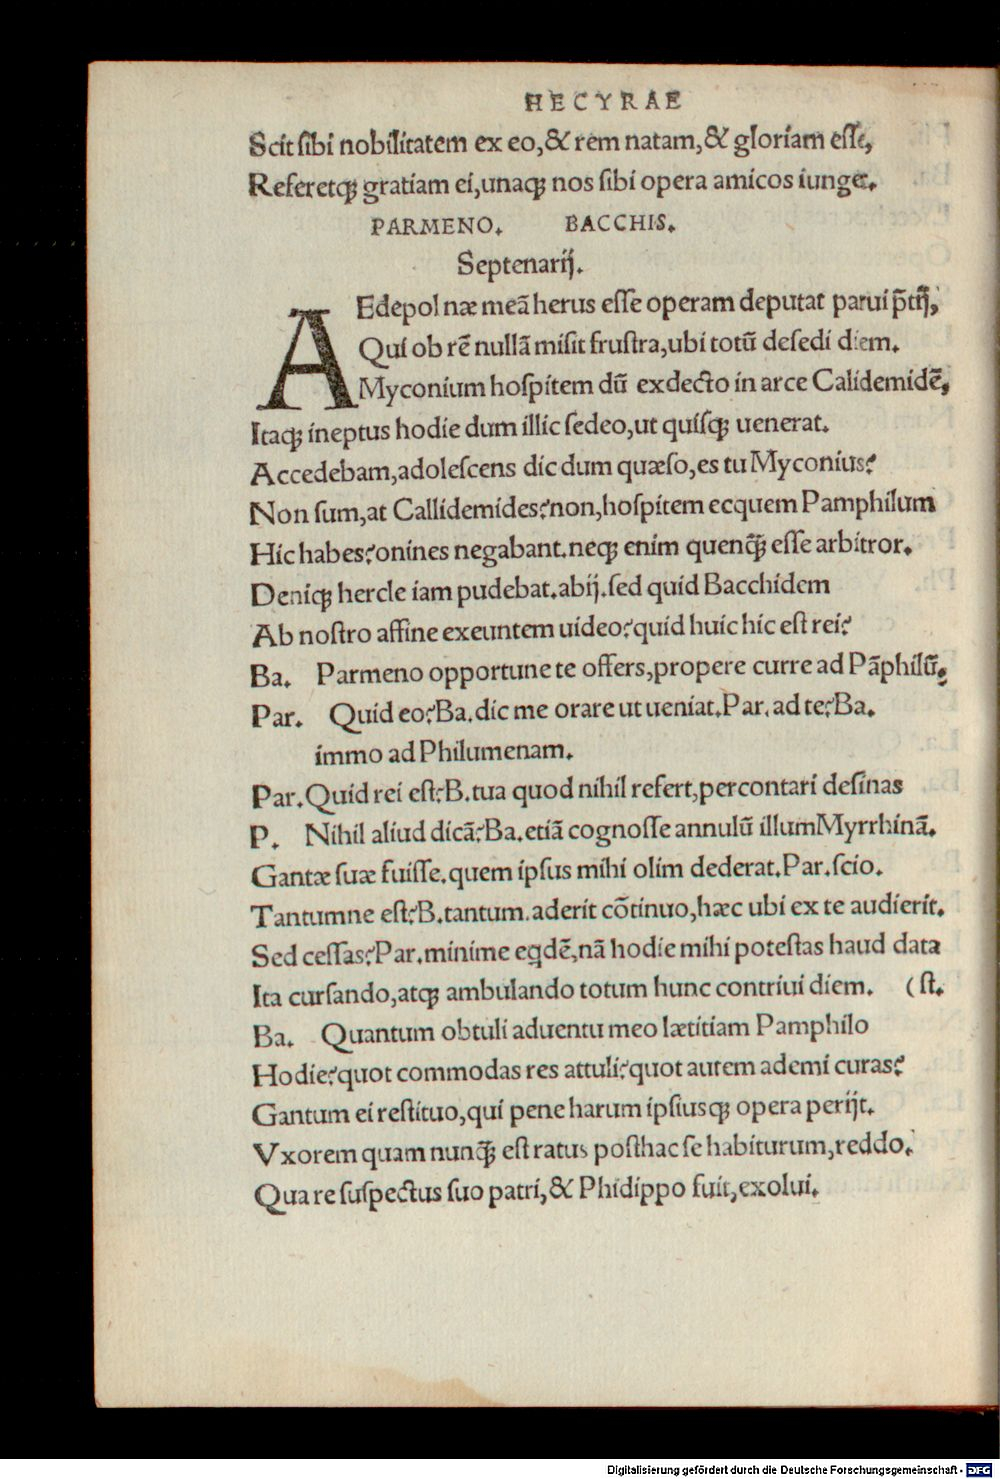 HECYRAE
Scit sibi nobilitatem ex eo,& rem natam,& gloriam esse,
Referetq́ꝫ gratiam ei,unaq́ꝫ nos sibi opera amicos iunget.
PARMENO. BACCHIS.
Septenarij.
AEdepol næ meã herus esse operam deputat parui p̃tij,
Qui ob rẽ nullã misit frustra,ubi totũ desedi diem.
Myconium hospitem dũ exdecto in arce Calidemidẽ,
Itaqꝫ ineptus hodie dum illic sedeo,ut quisqꝫ uenerat.
Accedebam,adolescens dic dum quæso,es tu Myconius?
Non sum,at Callidemides?non,hospitem ecquem Pamphilum
Hic habes?onines negabant.neqꝫ enim quenq̃ꝫ esse arbitror.
Deniqꝫ hercle iam pudebat.abij.sed quid Bacchidem
Ab nostro affine exeuntem uideo?quid huic hic est rei?
Ba. Parmeno opportune te offers,propere curre ad Pãphilũ.
Par. Quid eo?Ba.dic me orare ut ueniat.Par.ad te?Ba.
immo ad Philumenam.
Par.Quid rei est?B.tua quod nihil refert,percontari desinas
P. Nihil aliud dicã?Ba.etiã cognosse annulũ illumMyrrhinã.
Gantæ suæ fuisse.quem ipsus mihi olim dederat.Par.scio.
Tantumne est?B.tantum.aderit cõtinuo,hæc ubi ex te audierit.
Sed cessas?Par.minime eqdẽ,nã hodie mihi potestas haud data
Ita cursando,atqꝫ ambulando totum hunc contriui diem. (st.
Ba. Quantum obtuli aduentu meo lætitiam Pamphilo
Hodie?quot commodas res attuli?quot autem ademi curas?
Gantum ei restituo,qui pene harum ipsiusqꝫ opera perijt.
Vxorem quam nunq̃ꝫ est ratus posthac se habiturum,reddo.
Qua re suspectus suo patri,& Phidippo fuit,exolui.
Digitalisierung gefördert durch die Deutsche Forschungsgemeinschaft - DFG